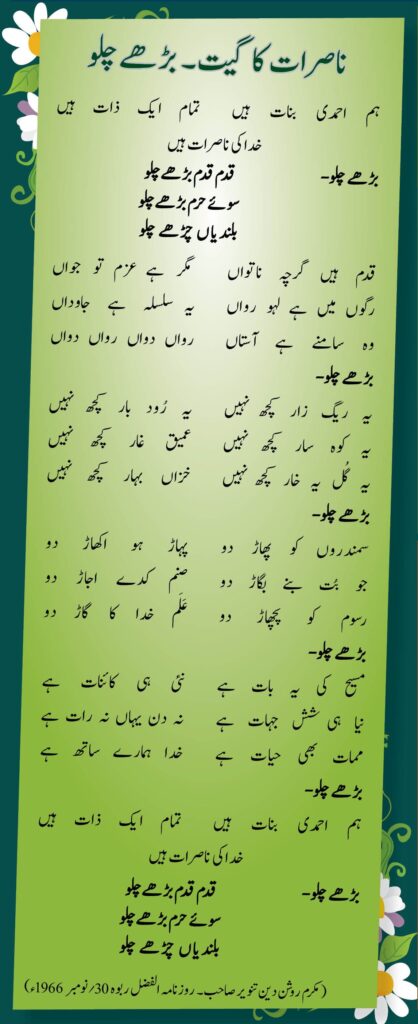 ناصرات کا گیت۔ بڑھے چلو
ہم احمدی بنات ہیں تمام ایک ذات ہیں
خدا کی ناصرات ہیں
بڑھے چلو- قدم قدم بڑھے چلو
سوئے حرم بڑھے چلو
بلندیاں چڑھے چلو
قدم ہیں گرچہ ناتواں مگر ہے عزم تو جواں
رگوں میں ہے لہو رواں یہ سلسلہ ہے جاوداں
وہ سامنے ہے آستاں رواں دواں رواں دواں
بڑھے چلو-
یہ ریگ زار کچھ نہیں یہ رُود بار کچھ نہیں
یہ کوہ سار کچھ نہیں عمیق غار کچھ نہیں
یہ گُل یہ خار کچھ نہیں خزاں بہار کچھ نہیں
بڑھے چلو-
سمندروں کو پھاڑ دو پہاڑ ہو اکھاڑ دو
جو بُت بنے بگاڑ دو صنم کدے اجاڑ دو
رسوم کو پچھاڑ دو عَلَم خدا کا گاڑ دو
بڑھے چلو-
مسیح کی یہ بات ہے نئی ہی کائنات ہے
نیا ہی شش جہات ہے نہ دن یہاں نہ رات ہے
ممات بھی حیات ہے خدا ہمارے ساتھ ہے
بڑھے چلو-
ہم احمدی بنات ہیں تمام ایک ذات ہیں
خدا کی ناصرات ہیں
بڑھے چلو- قدم قدم بڑھے چلو
سوئے حرم بڑھے چلو
بلندیاں چڑھے چلو
(مکرم روشن دین تنویر صاحب۔ روزنامہ الفضل ربوہ 30/نومبر 1966ء)